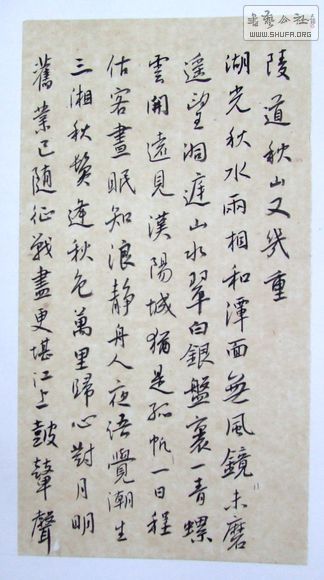 陵道秋山又幾重
湖光秋水兩相和潭面無風鏡未磨
遥望洞庭山水翠白銀盤裏一青螺
雲開遠見漢陽城猶是孤帆一日程
估客晝眠知浪靜舟人夜語覺潮生
三湘秋鬢逢秋色萬里歸心對月明
舊業已隨征戰盡更堪江上鼓鼙聲
WWW.SHUFA.ORG